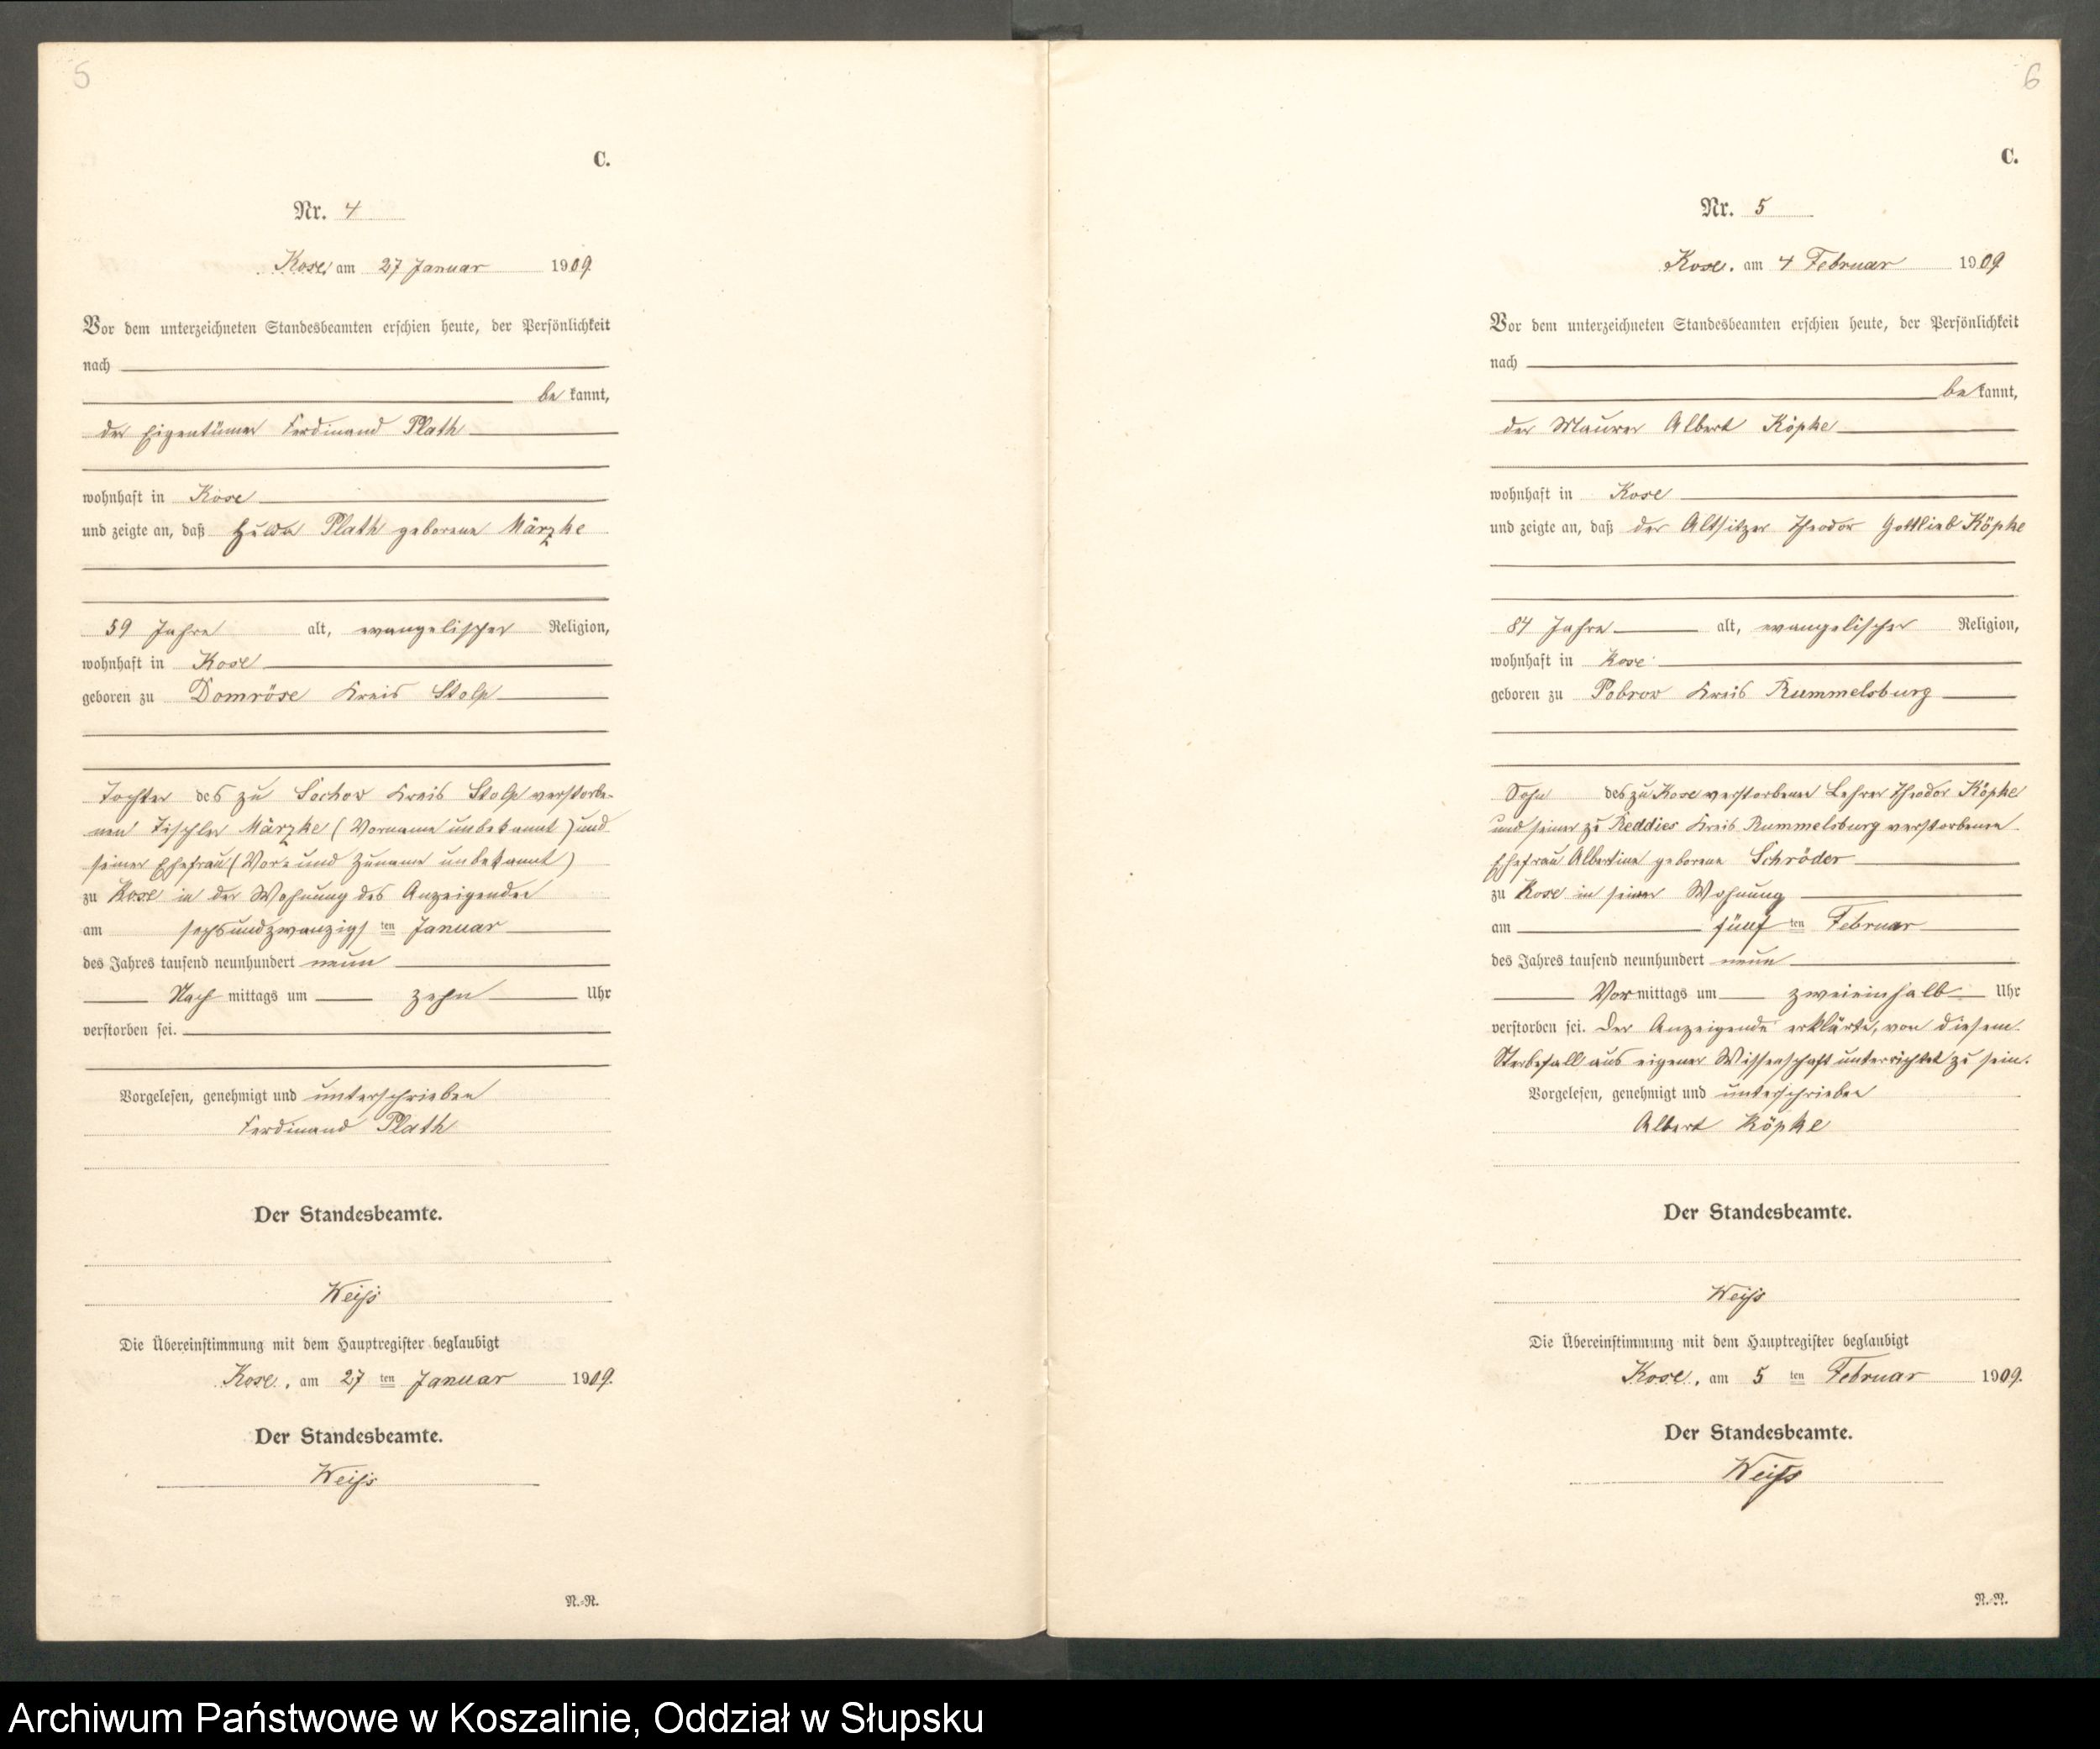 5
C.
Nr. 4
Kose, am 27 Januar 1909.
Vor dem unterzeichneten Standesbeamten erschien heute, der Persönlichkeit
nach
be kannt,
der Eigentümer Ferdinand Plath
wohnhaft in Kose
und zeigte an, daß Plath geborene Märzke
59 Jahre alt, evangelischer Religion,
wohnhaft in Kose
geboren zu Domröse Kreis Stolp
Tochter des zu Sochow Kreis Stolp verstorbe-
nen Tischler Märzke (Vorname unbekannt) und
seiner Ehefrau (Vor- und Zuname unbekannt)
zu Kose in der Wohnung des Anzeigenden
am sechsundzwanzigs ten Januar
des Jahres tausend neunhundert neun
Nach mittags um zehn Uhr
verstorben sei.
Vorgelesen, genehmigt und unterschrieben
Ferdinand Plath
Der Standesbeamte.
Weiß
Die Übereinstimmung mit dem Hauptregister beglaubigt
Kose, am 27 ten Januar 1909.
Der Standesbeamte.
Weiß
N.-R.
6
C.
Nr. 5
Kose, am 4 Februar 1909
Vor dem unterzeichneten Standesbeamten erschien heute, der Persönlichkeit
nach
be kannt,
der Maurer Albert Köpke
wohnhaft in Kose
und zeigte an, daß der Altsitzer Theodor Gottlieb Köpke
84 Jahre alt, evangelischer Religion,
wohnhaft in Kose
geboren zu Pobrow Kreis Rummelsburg
Sohn des zu Kose verstorbenen Lehrer Theodor Köpke
und seiner zu Reddies Kreis Rummelsburg verstorbenen
Ehefrau Albertine geborene Schröder
zu Kose in seiner Wohnung
am fünf ten Februar
des Jahres tausend neunhundert neun
Vor mittags um zweieinhalb Uhr
verstorben sei. Der Anzeigende erklärte, von diesem
Sterbefall aus eigener Wissenschaft unterrichtet zu sein.
Vorgelesen, genehmigt und unterschrieben
Albert Köpke
Der Standesbeamte.
Weiß
Die Übereinstimmung mit dem Hauptregister beglaubigt
Kose, am 5 ten Februar 1909.
Der Standesbeamte.
Weiß
N.-R.
Archiwum Państwowe w Koszalinie, Oddział w Słupsku